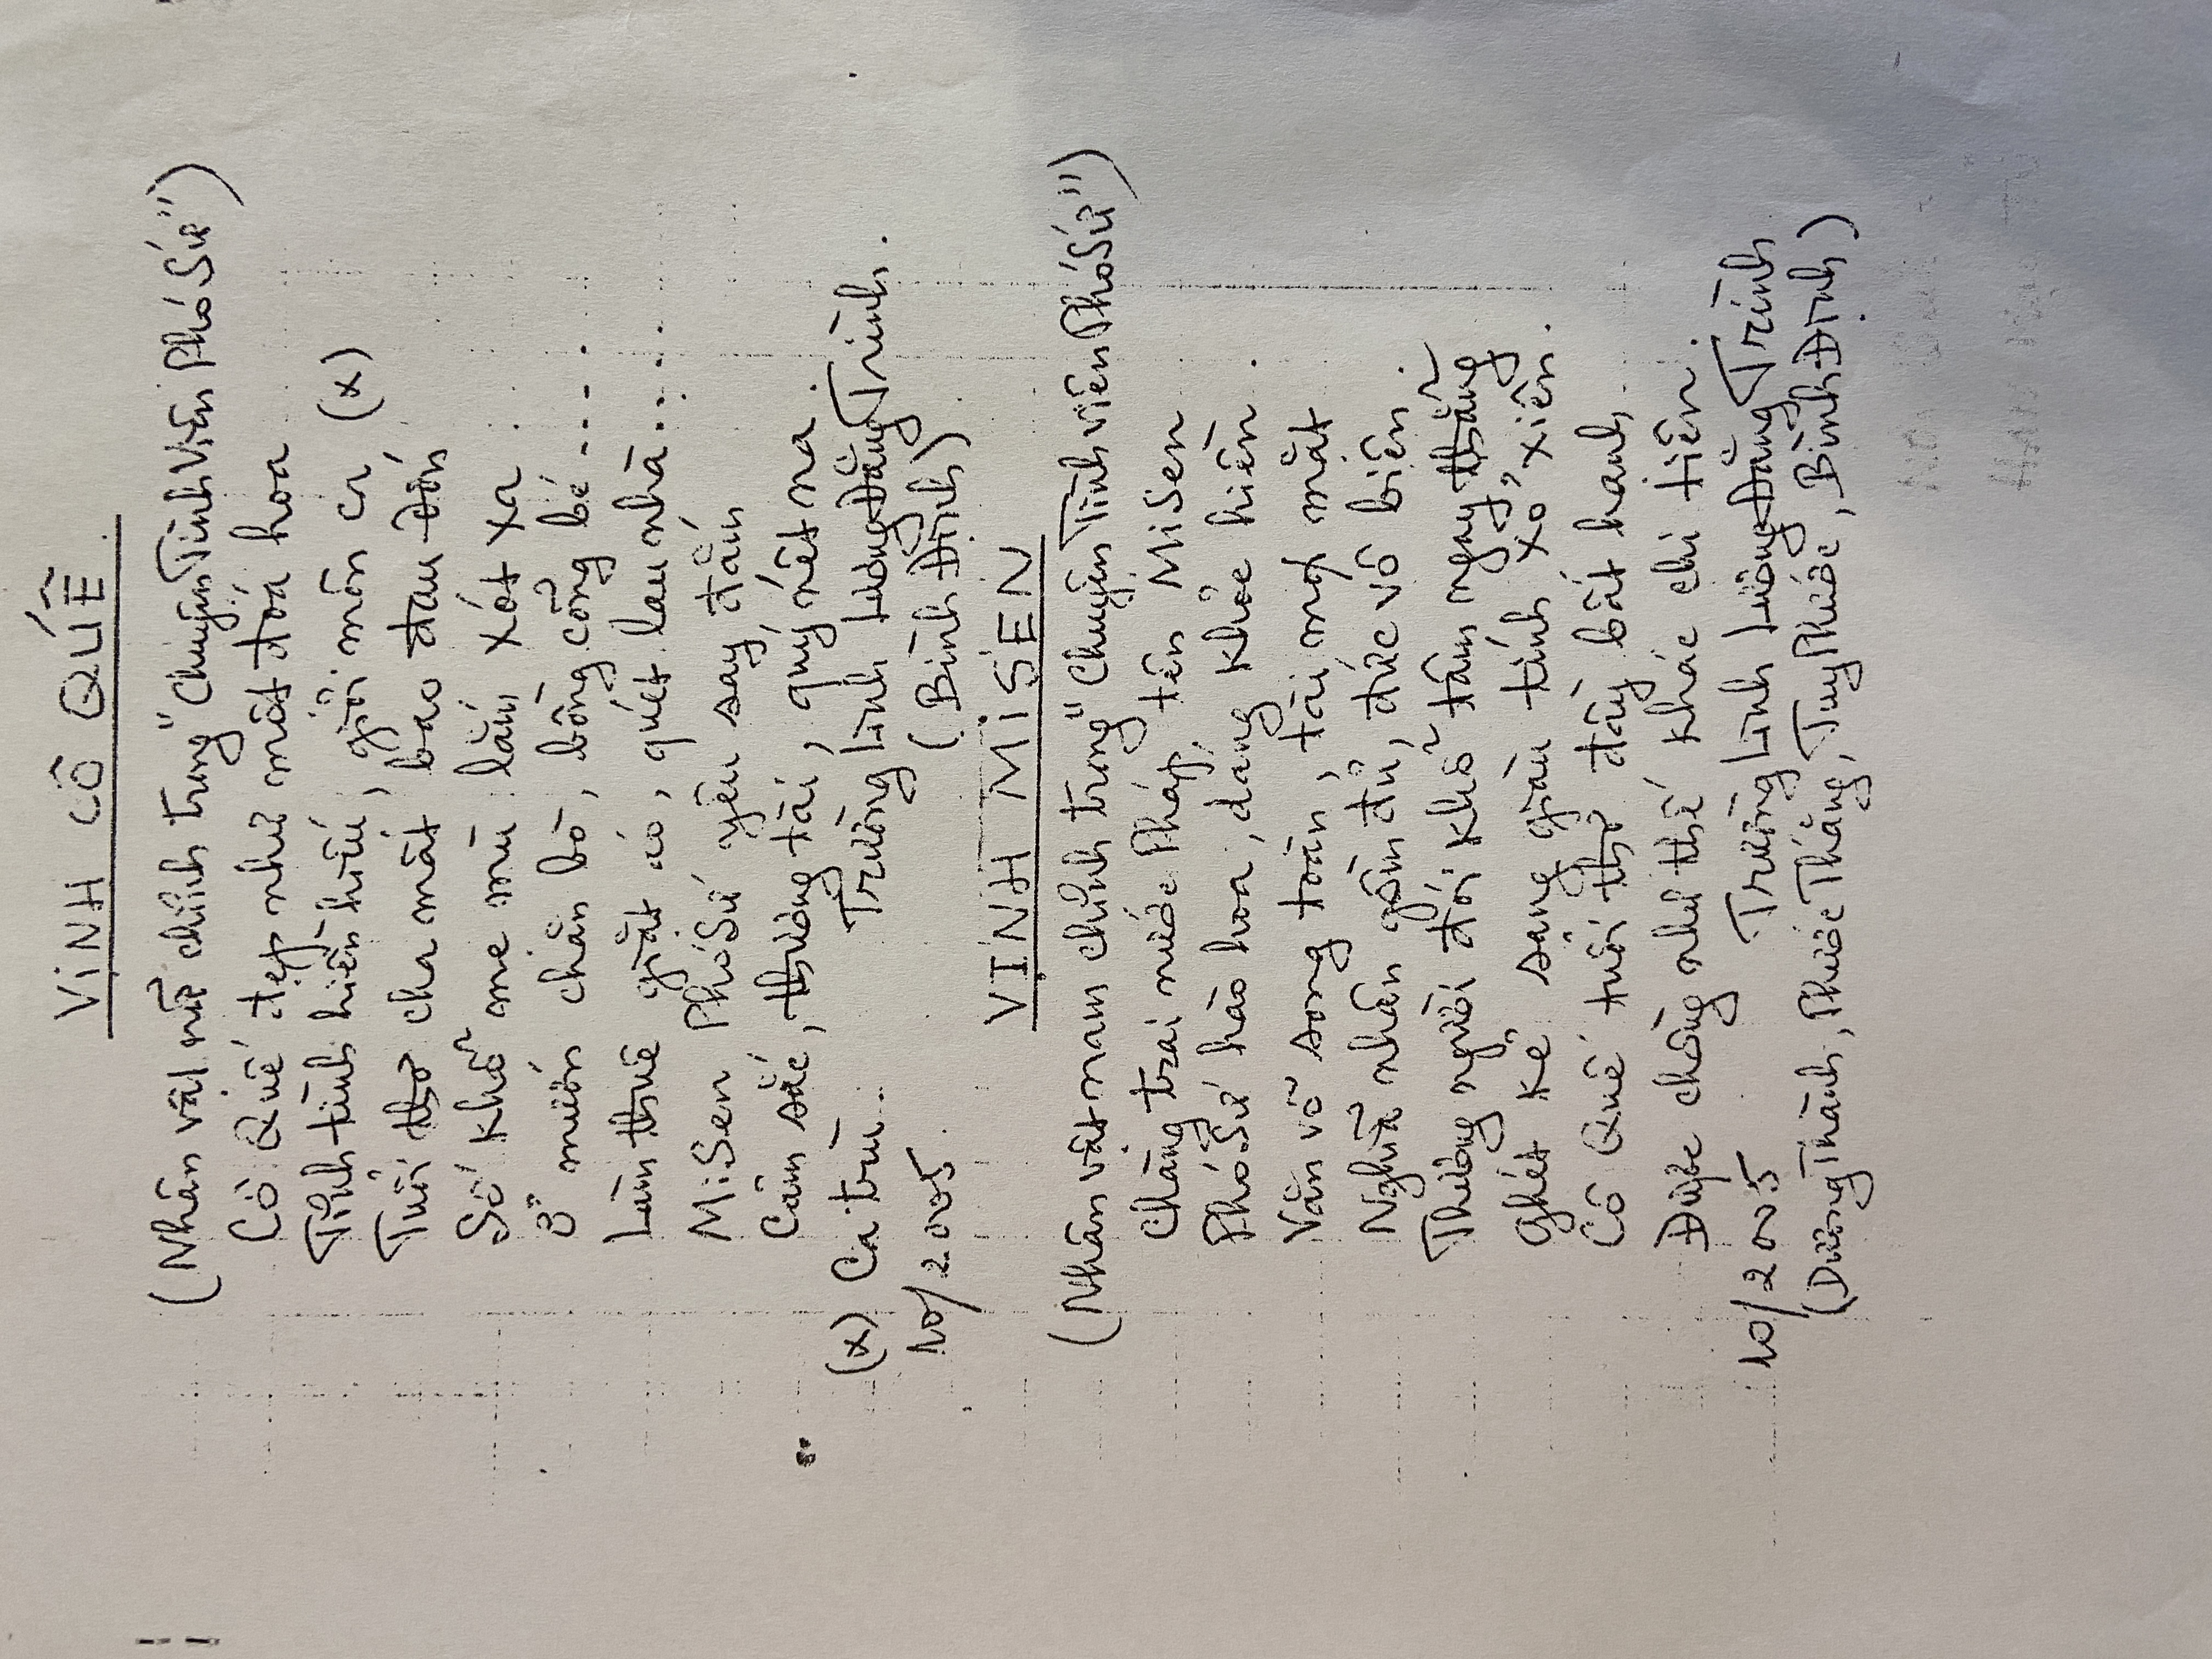 VỊNH CÔ QUẾ
(Nhân vật nữ chính trong "Chuyện Tình Viên Phó Sứ")
Cô Quế đẹp như một đoá hoa
Tính tình hiền hữu, giỏi môn ca (x)
Tuổi thơ cha mất, bao đau đớn
Số khổ mẹ mù lắm xót xa.
Ở mướn chăn bò, bồng cõng bé....
Làm thuê giặt áo, quét lau nhà....
MiSen Phó Sứ yêu say đắm
Cảm sắc, thương tài, quý nết na.
(x) Ca trù... Trường Linh Lương Đằng Trình.
10/2005 (Bình Định)
VỊNH MiSEN
(Nhân vật nam chính trong "Chuyện Tình viên Phó Sứ")
Chàng trai nước Pháp, tên MiSen
Phó Sứ hào hoa, dáng khỏe hiền.
Văn võ song toàn, tài mọi mặt
Nghĩa nhân gồm đủ, đức vô biên.
Thương người đói khổ tâm ngay thẳng
Ghét kẻ sang giàu tính xỏ, xiên.
Cô Quế tuổi thơ đầy bất hạnh
Được chồng như thế khác chi tiên.
10/2005 Trường Linh Lương Đằng Trình
(Dương Thành, Phước Thắng, Tuy Phước, Bình Định)